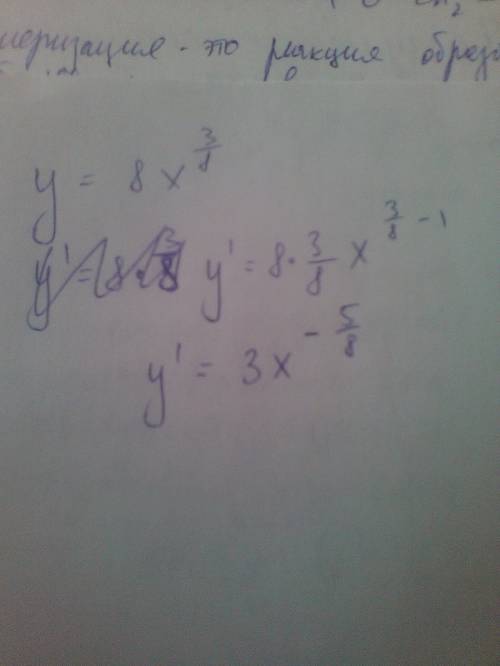 CH₂
меризация - это реакция образо
y = 8x^(3/8)
y' = 8 · 3/8 y' = 8 · 3/8 x^(3/8 - 1)
y' = 3x^(-5/8)